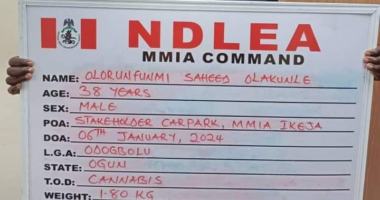 NDLEA
MMIA COMMAND
NAME: OLORUNFUNMI SAHEED OLAKUNLE
AGE: 38 YEARS
SEX: MALE
POA: STAKEHOLDER CARPARK, MMIA IKEJA
DOA: 06TH JANUARY, 2024
L.G.A: ODOGBOLU
STATE: OGUN
T.O.D: CANNABIS
WEIGHT: 1.80 KG